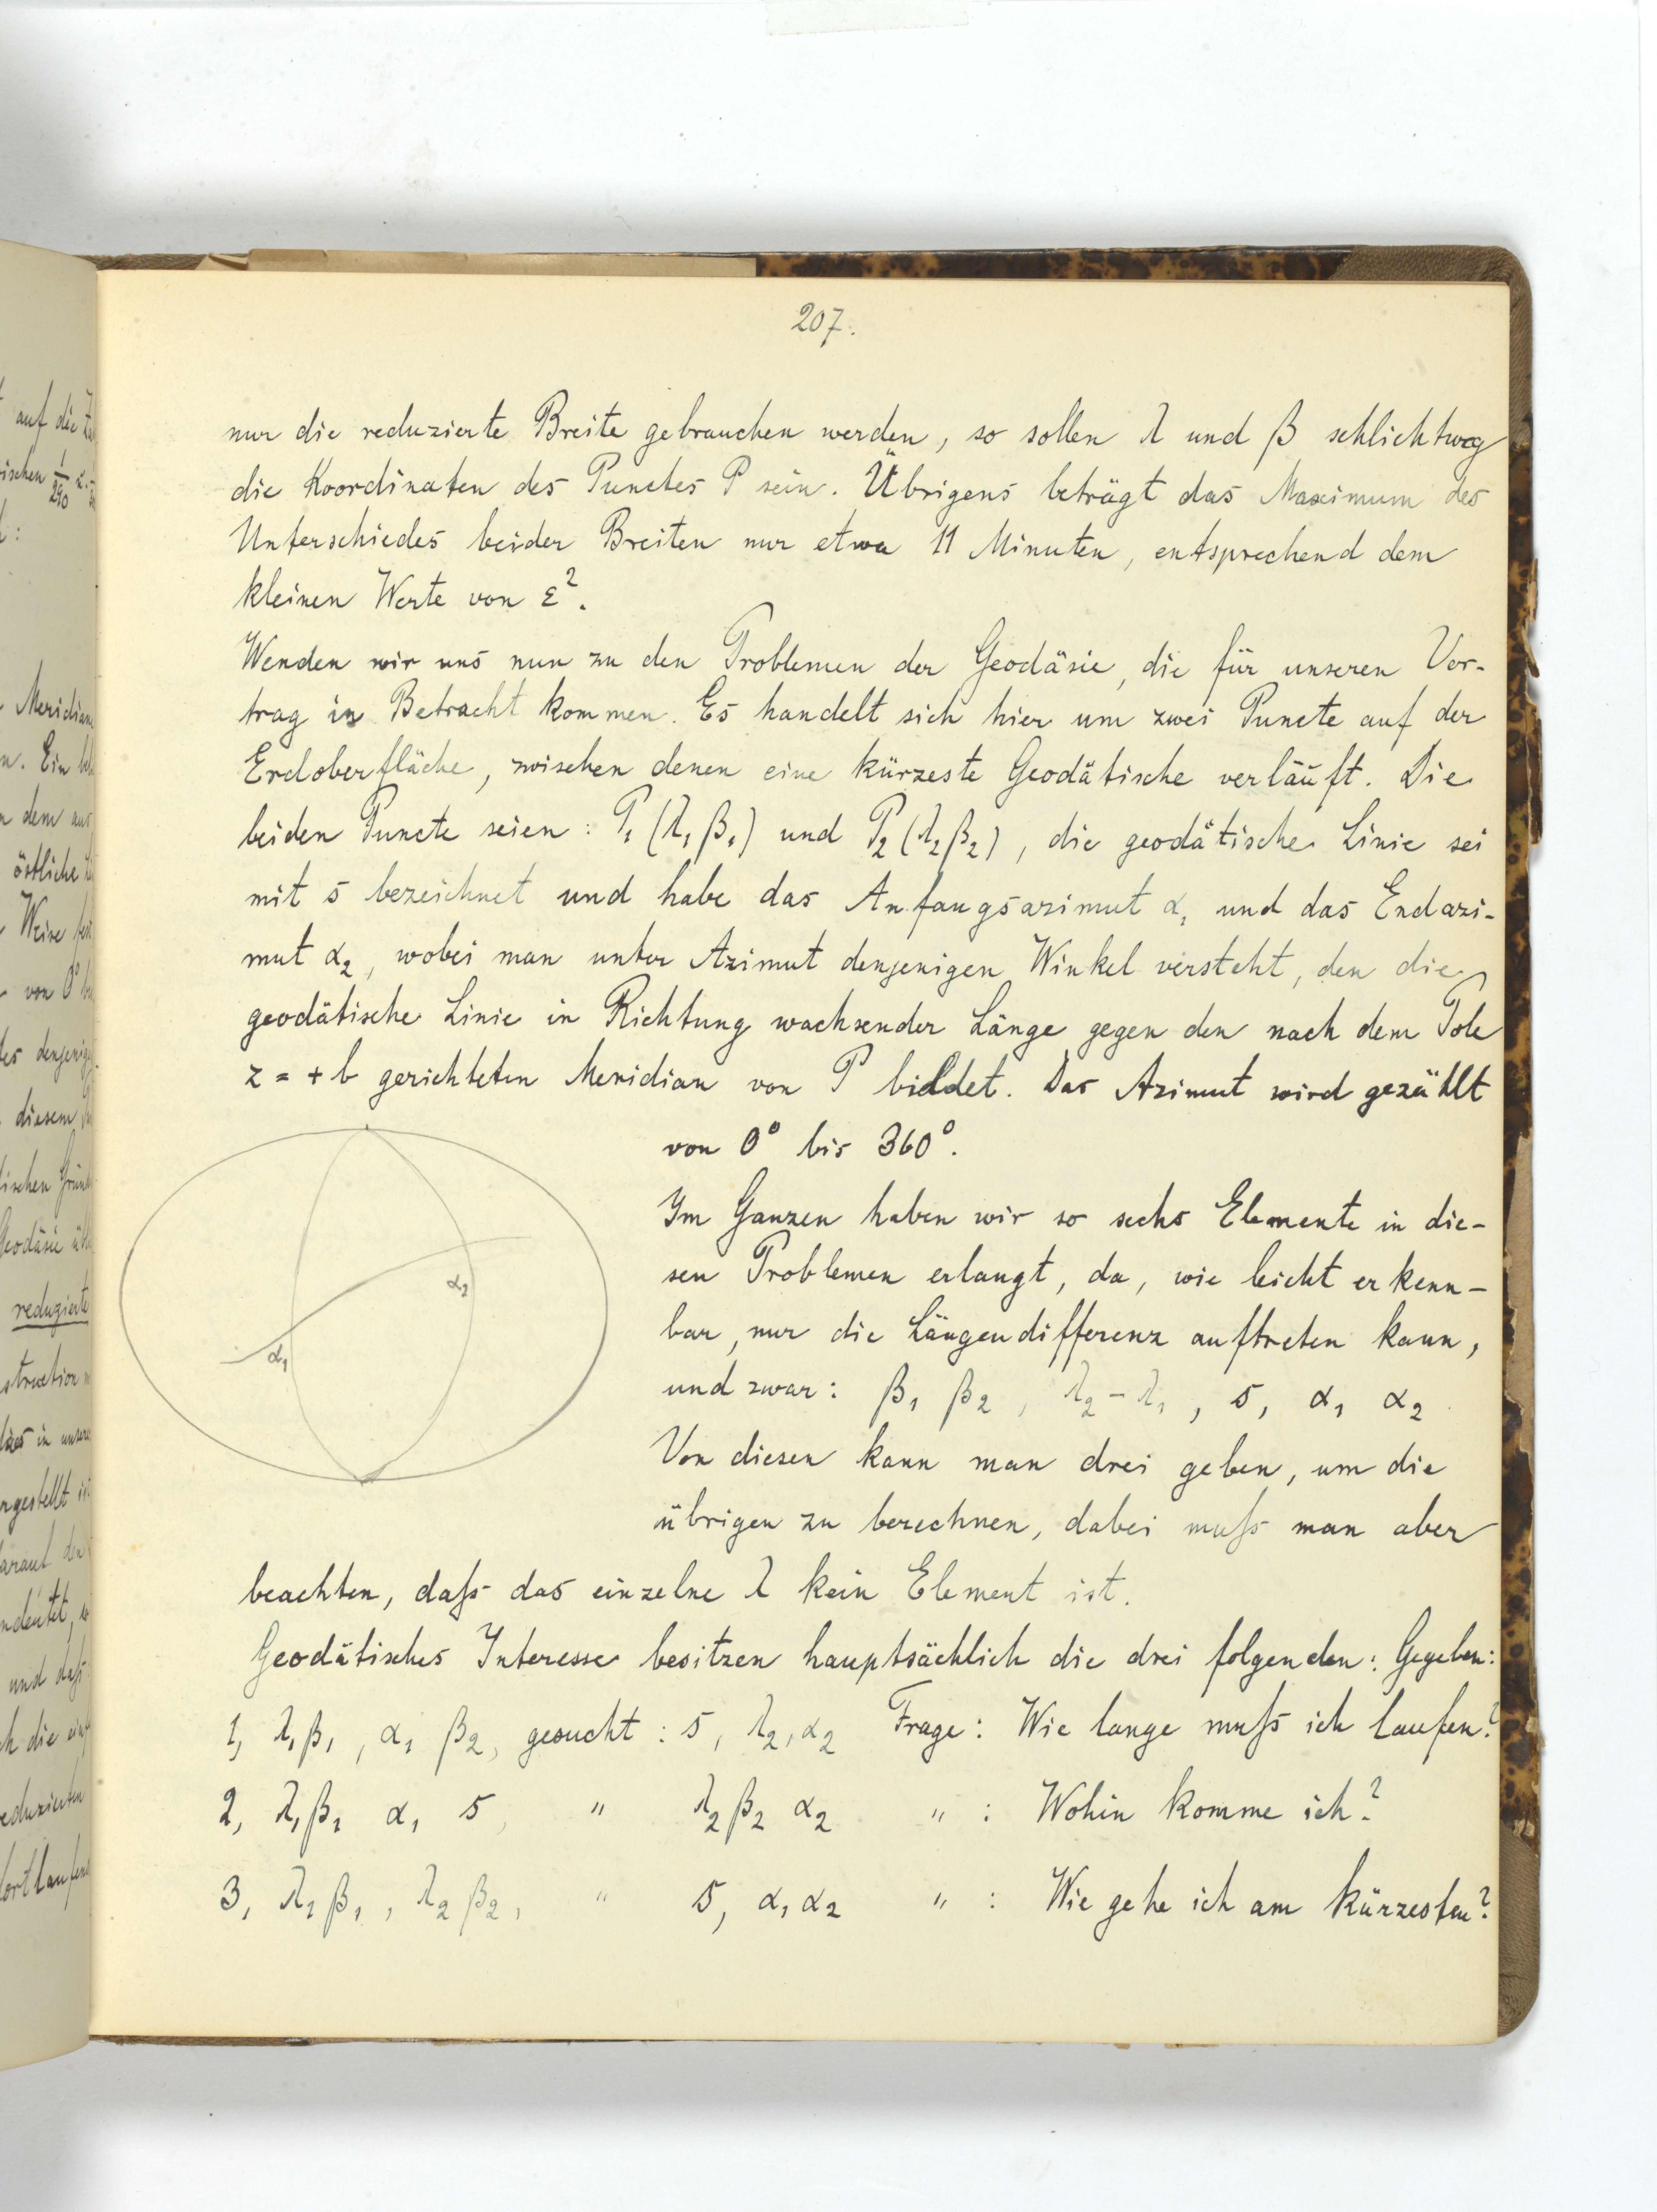 207.
nur die reduzierte Breite gebrauchen werden, so sollen λ und β schlichtweg
die Koordinaten des Punctes P sein. Übrigens beträgt das Maximum des
Unterschiedes beider Breiten nur etwa 11 Minuten, entsprechend dem
kleinen Werte von ε².
Wenden wir uns nun zu den Problemen der Geodäsie, die für unseren Vor-
trag in Betracht kommen. Es handelt sich hier um zwei Puncte auf der
Erdoberfläche, zwischen denen eine kürzeste Geodätische verläuft. Die
beiden Puncte seien: P₁ (λ₁ β₁) und P₂ (λ₂ β₂), die geodätische Linie sei
mit s bezeichnet und habe das Anfangsazimut α₁ und das Endazi-
mut α₂, wobei man unter Azimut denjenigen Winkel versteht, den die
geodätische Linie in Richtung wachsender Länge gegen den nach dem Pole
z = + b gerichteten Meridian von P bildet. Das Azimut wird gezählt
von 0° bis 360°.
Im Ganzen haben wir so sechs Elemente in die-
sen Problemen erlangt, da, wie leicht erkenn-
bar, nur die Längendifferenz auftreten kann,
und zwar: β₁ β₂, λ₂ - λ₁, s, α₁ α₂
Von diesen kann man drei geben, um die
übrigen zu berechnen, dabei muß man aber
beachten, daß das einzelne λ kein Element ist.
α₂
α₁
Geodätisches Interesse besitzen hauptsächlich die drei folgenden: Gegeben:
1, λ₁ β₁, α₁ β₂, gesucht: s, λ₂, α₂ Frage: Wie lange muß ich laufen?
2, λ₁ β₁ α₁ s, " λ₂ β₂ α₂ " : Wohin komme ich?
3, λ₁ β₁, λ₂ β₂, " s, α₁ α₂ " : Wie gehe ich am kürzesten?
auf die
Meridian
n. Ein
dem aus
östliche
Weise
von 0°
diesem
reduzierte
in unsere
und daß